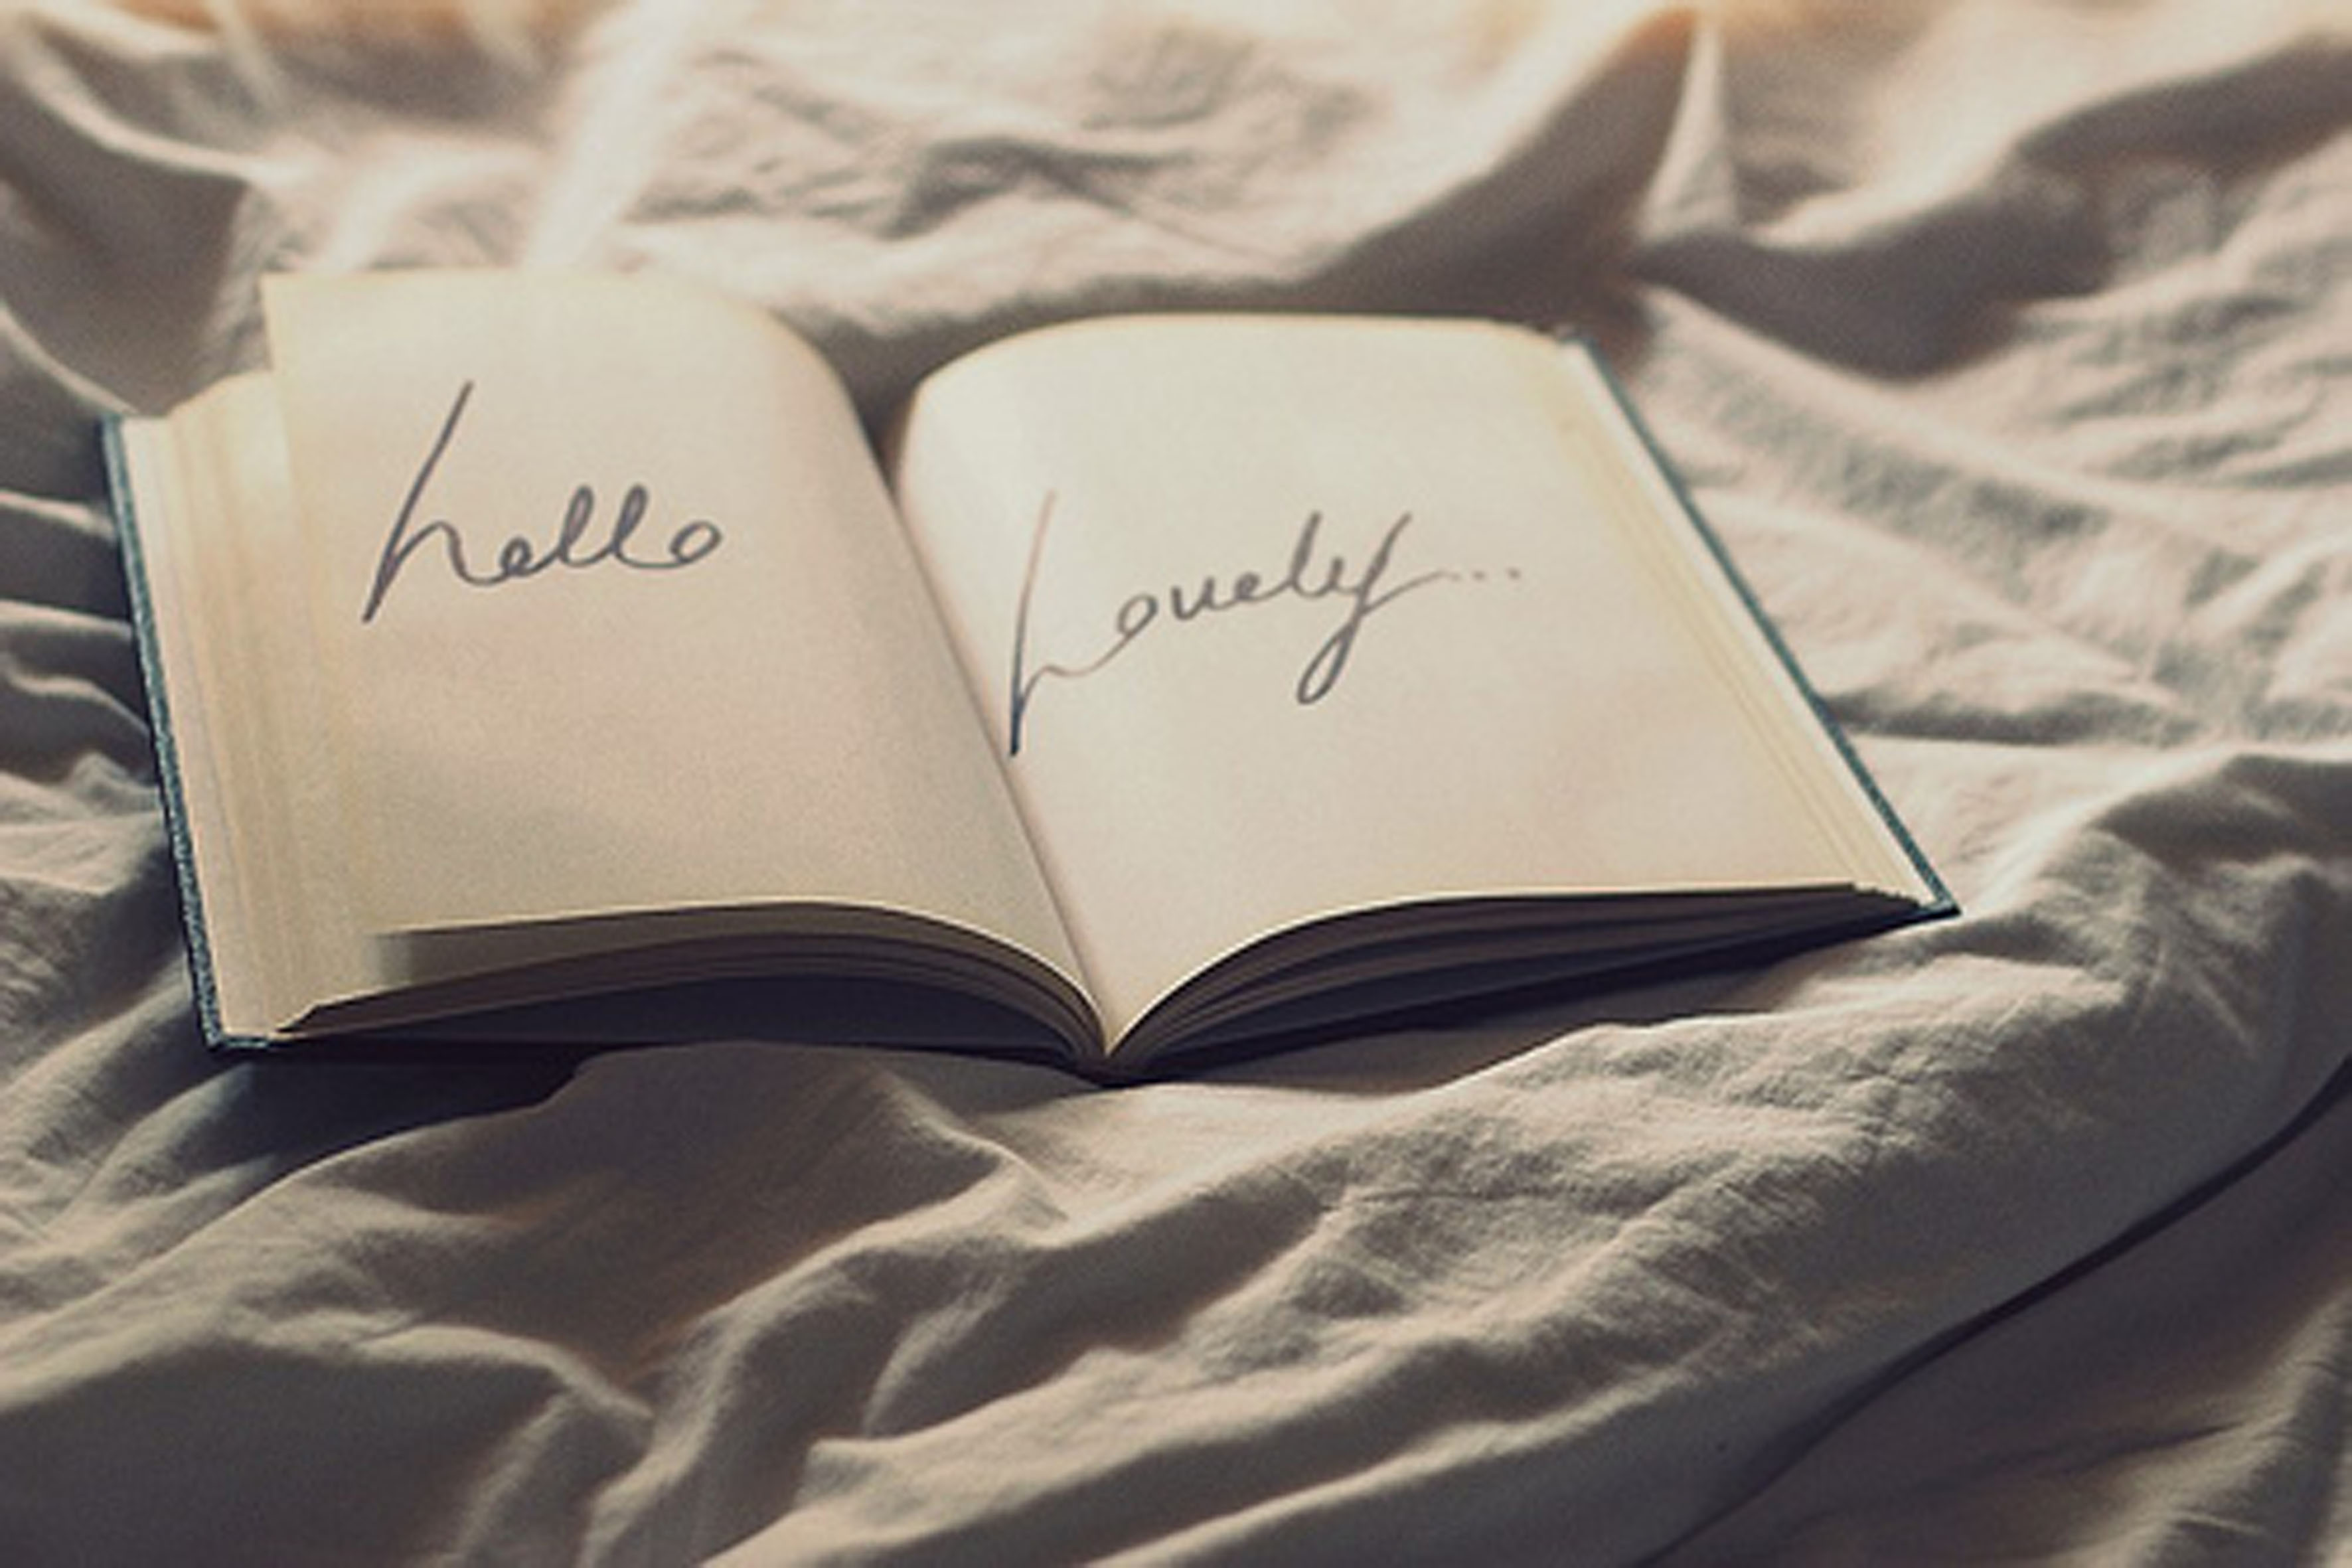 hello
Lovely...